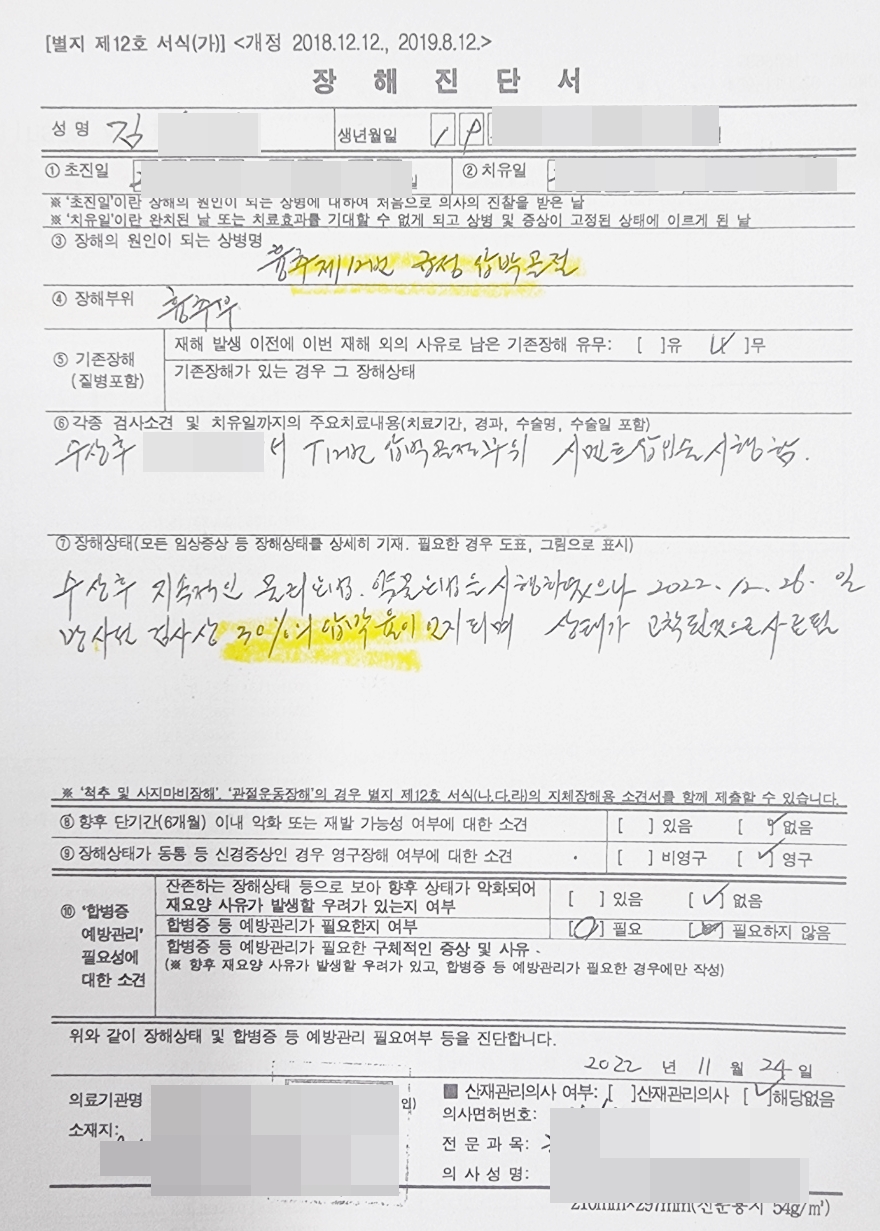 [별지 제12호 서식(가)] <개정 2018.12.12., 2019.8.12.>
장 해 진 단 서
성 명 김 생년월일 1 9
① 초진일 일 ② 치유일
※ '초진일'이란 장해의 원인이 되는 상병에 대하여 처음으로 의사의 진찰을 받은 날
※ '치유일'이란 완치된 날 또는 치료효과를 기대할 수 없게 되고 상병 및 증상이 고정된 상태에 이르게 된 날
③ 장해의 원인이 되는 상병명
흉추제12번 압박골절
④ 장해부위 흉추부
⑤ 기존장해
(질병포함)
재해 발생 이전에 이번 재해 외의 사유로 남은 기존장해 유무: [ ]유 [✓]무
기존장해가 있는 경우 그 장해상태
⑥ 각종 검사소견 및 치유일까지의 주요치료내용(치료기간, 경과, 수술명, 수술일 포함)
수상후 T12번 압박골절부위 시멘트삽입술시행함.
⑦ 장해상태(모든 임상증상 등 장해상태를 상세히 기재. 필요한 경우 도표, 그림으로 표시)
수상후 지속적인 물리치료, 약물치료를 시행하였으나 2022. 12. 26. 일
방사선 검사상 30%의 압박율이 인지되며 상태가 고착된것으로사료됨
※ '척추 및 사지마비장해', '관절운동장해'의 경우 별지 제12호 서식(나.다.라)의 지체장해용 소견서를 함께 제출할 수 있습니다.
⑧ 향후 단기간(6개월) 이내 악화 또는 재발 가능성 여부에 대한 소견 [ ] 있음 [✓] 없음
⑨ 장해상태가 동통 등 신경증상인 경우 영구장해 여부에 대한 소견 [ ] 비영구 [✓] 영구
⑩ '합병증
예방관리'
필요성에
대한 소견
잔존하는 장해상태 등으로 보아 향후 상태가 악화되어
재요양 사유가 발생할 우려가 있는지 여부 [ ] 있음 [✓] 없음
합병증 등 예방관리가 필요한지 여부 [○] 필요 [ ] 필요하지 않음
합병증 등 예방관리가 필요한 구체적인 증상 및 사유
(※ 향후 재요양 사유가 발생할 우려가 있고, 합병증 등 예방관리가 필요한 경우에만 작성)
위와 같이 장해상태 및 합병증 등 예방관리 필요여부 등을 진단합니다.
2022 년 11 월 24 일
의료기관명 인)
소재지:
■ 산재관리의사 여부: [ ]산재관리의사 [✓]해당없음
의사면허번호:
전 문 과 목:
의 사 성 명:
210mm×297mm(신문용지 54g/㎡)